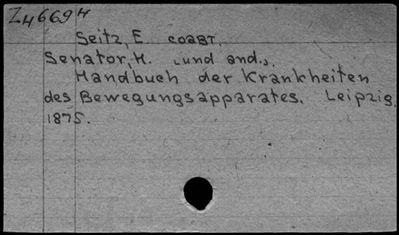 Z4669H
Seitz, E. соавт.
Senator, H. und and.,
Handbuch der Krankheiten
des Bewegungsapparates. Leipzig.
1875.